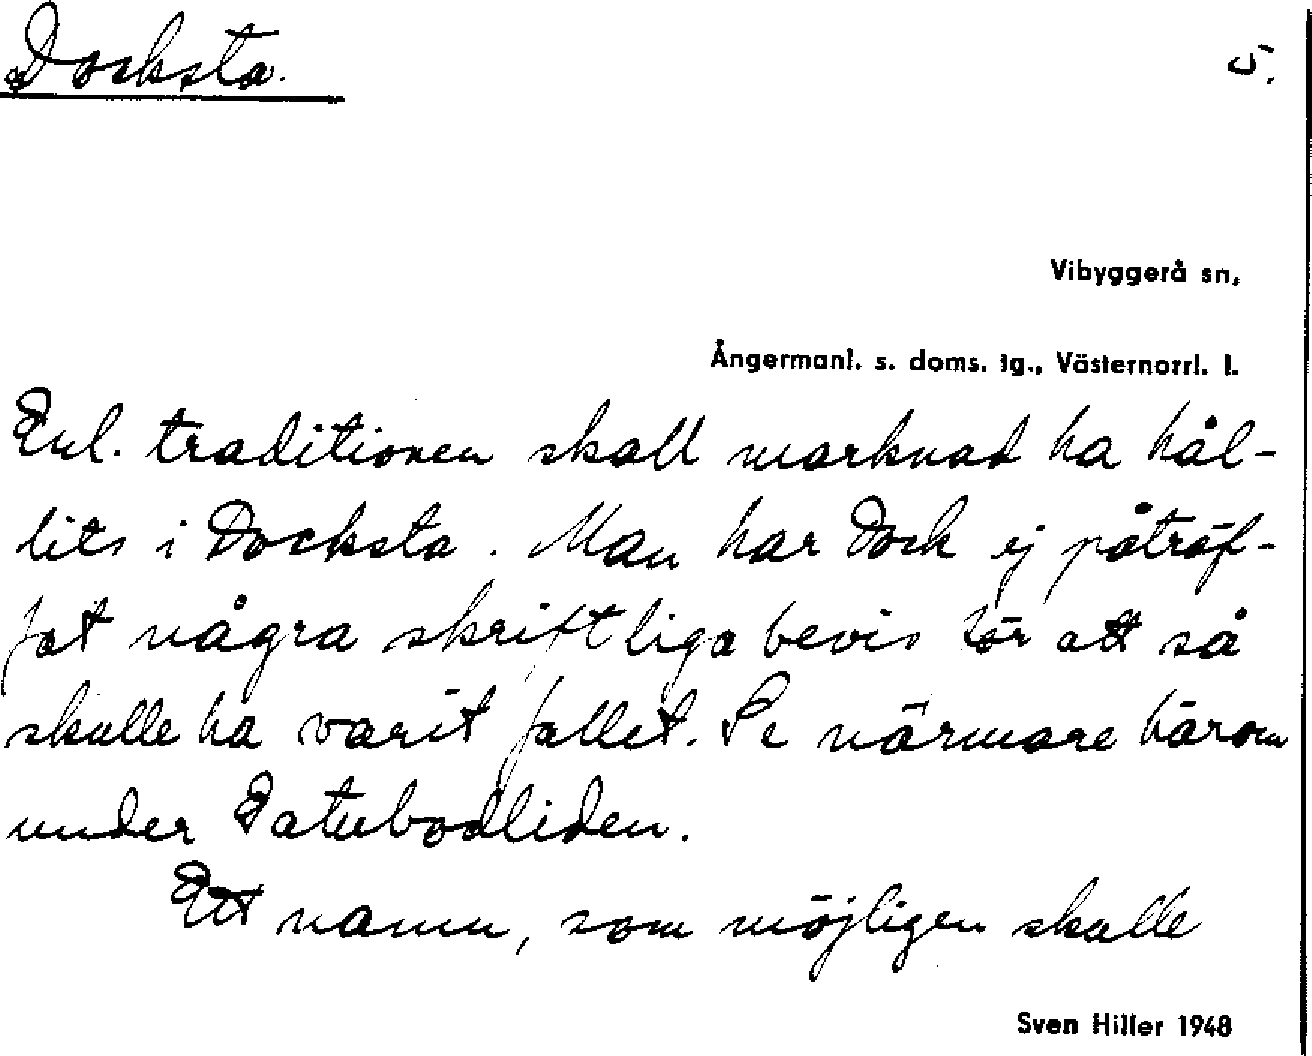 Docksta. 5.
Vibyggerå sn,
Ångermanl. s. doms. tg., Västernorrl. l.
Enl. traditionen skall marknad ha hål-
lits i Docksta. Man har dock ej påträf-
fat några skriftliga bevis för att så
skulle ha varit fallet. Se närmare härom
under
Ett namn, som möjligen skulle
Sven Hiller 1948